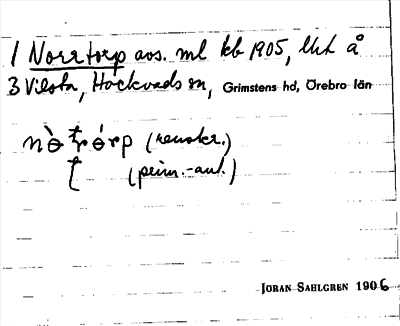 1 Norrtorp avs. ml kb 1905, lht å
3 Vilsta, Hackvads sn, Grimstens hd, Örebro län
(renskr.)
(prim.-aut.)
JÖRAN SAHLGREN 1906